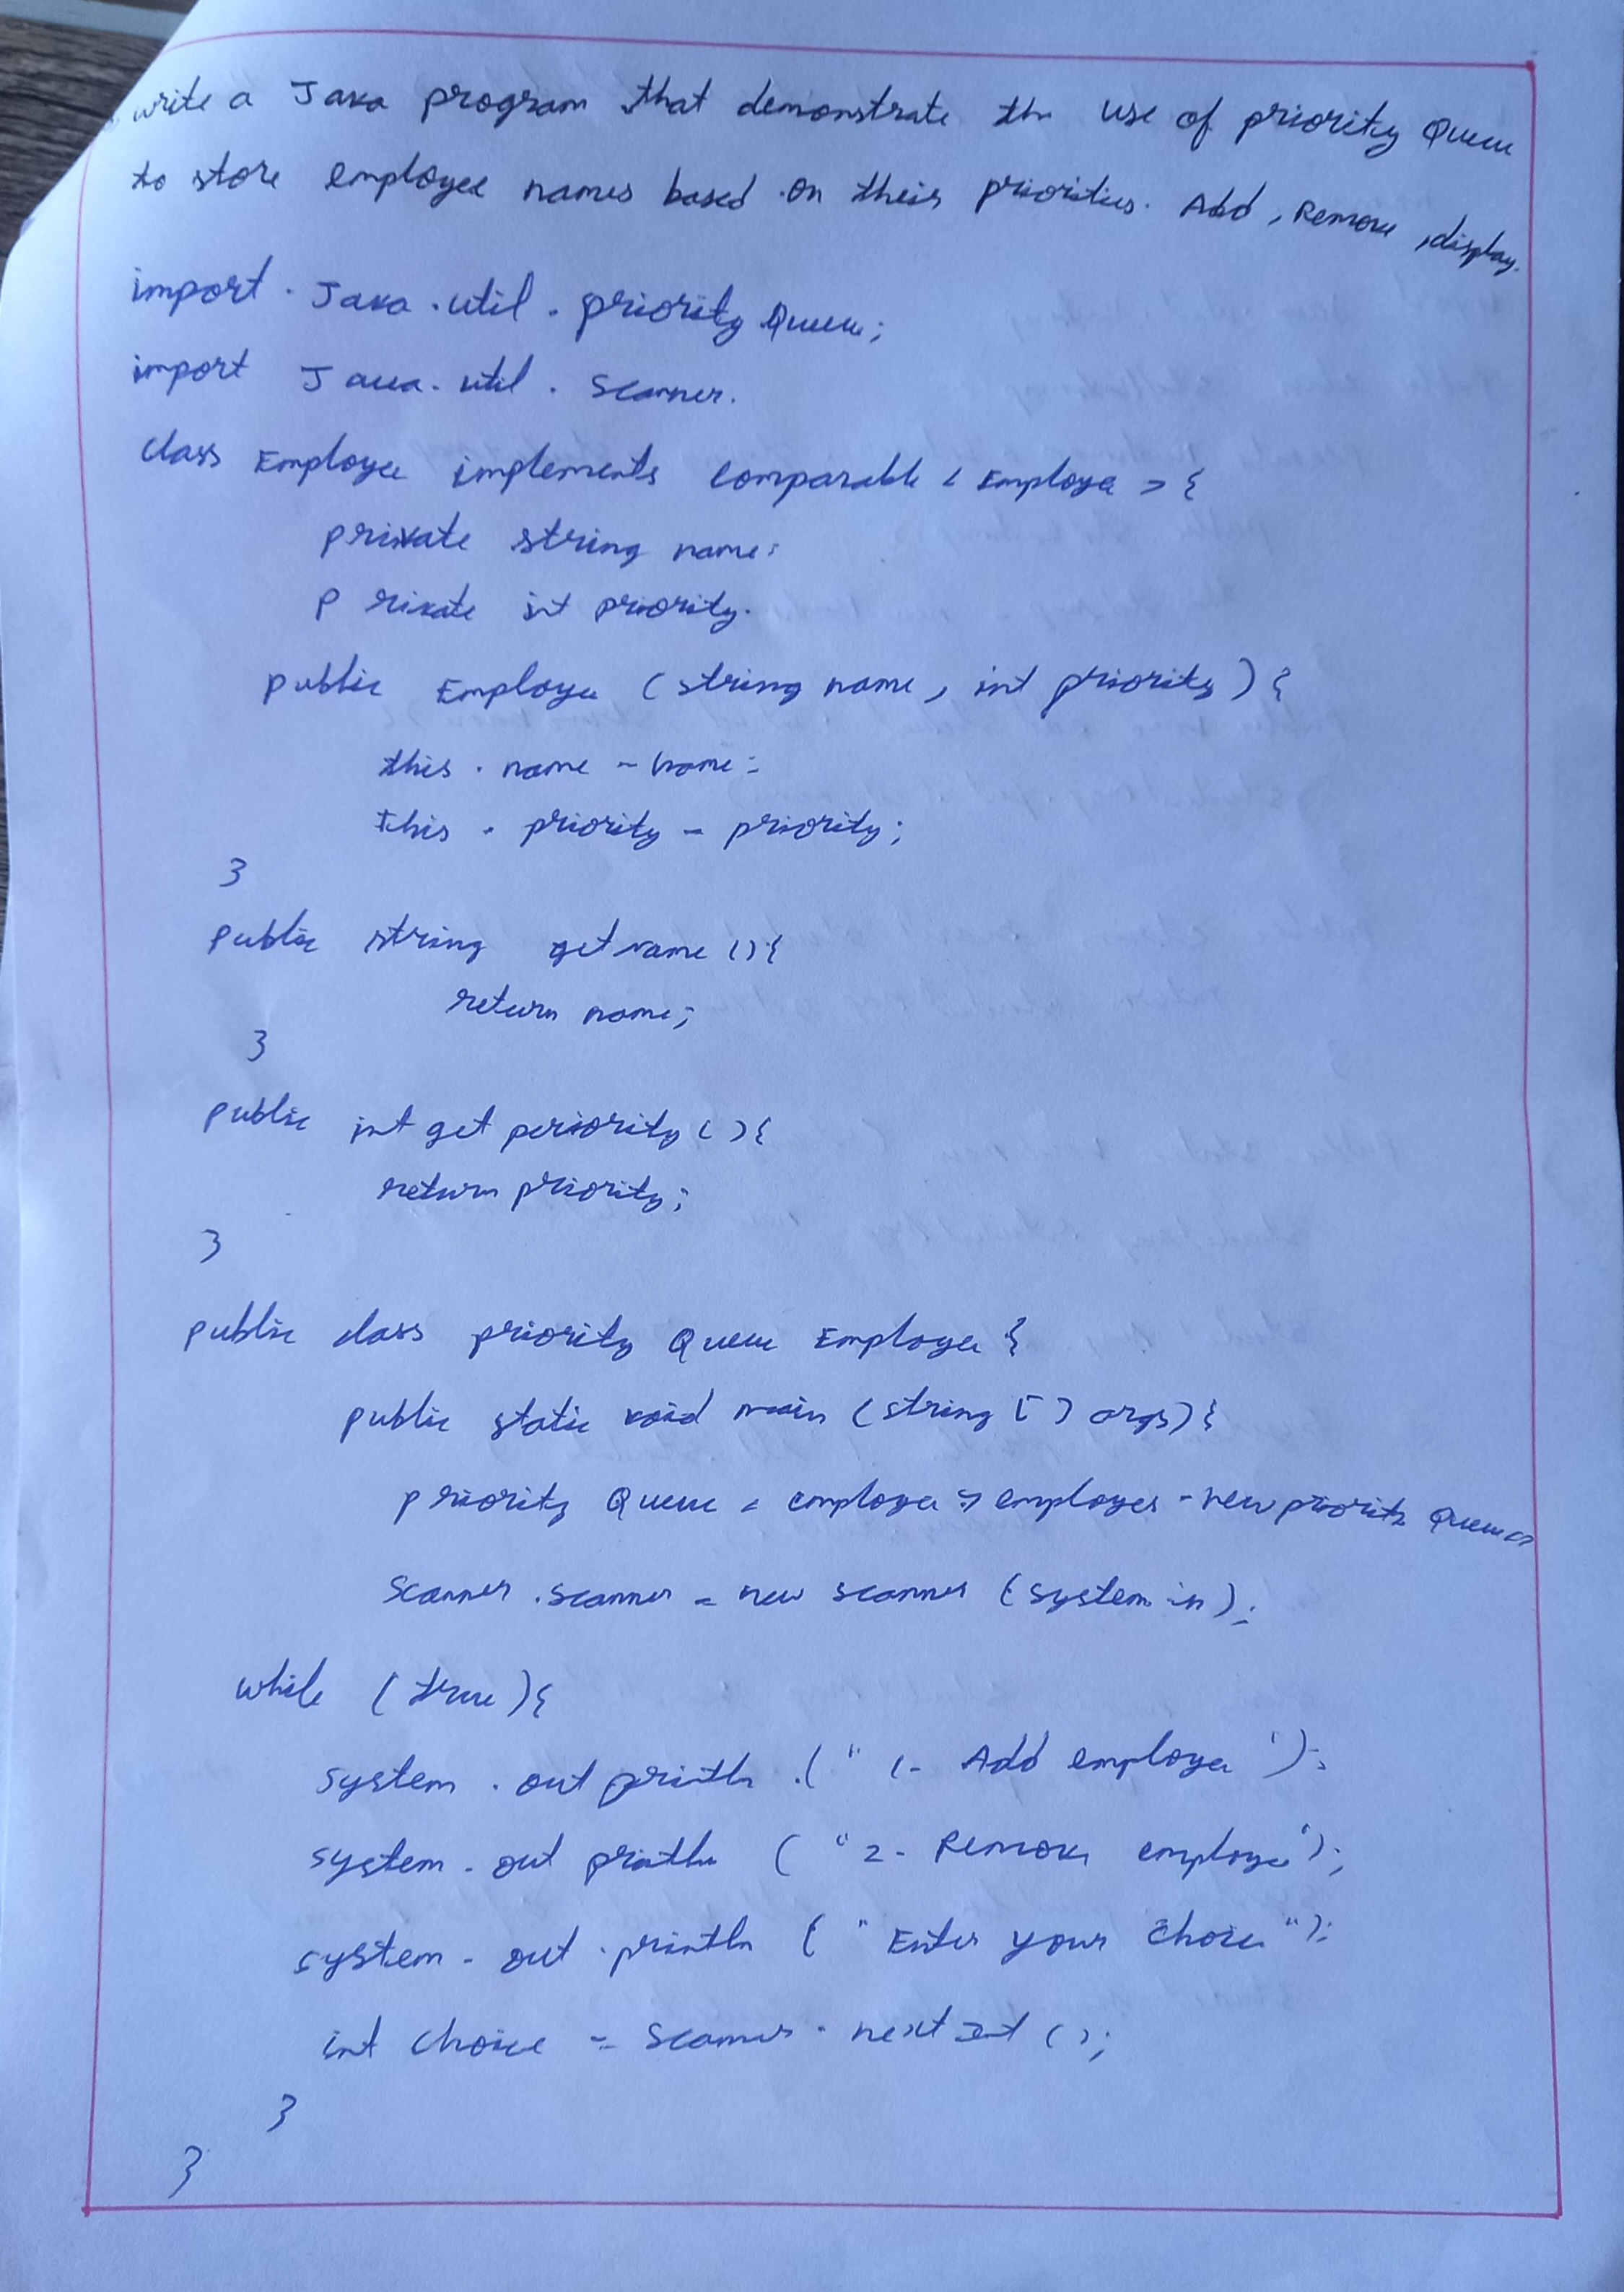 write a Java program that demonstrate the use of priority Queue
to store employee names based on their priorities. Add, Remove, display.
import. Java.util.priority Queue;
import Java.util.Scanner.
class Employee implements comparable < Employee > {
private string name:
private int priority.
public Employee (string name, int priority) {
this.name = name;
this.priority = priority;
}
public string getname () {
return name;
}
public int get periority () {
return priority;
}
public class priority Queue Employee {
public static void main (string [] args) {
priority Queue < employee > employees = new priority Queue <>
Scanner.scanner = new scanner (system.in);
while (true) {
system.out println.(" 1. Add employee ");
system.out println ( " 2. Remove employee");
system.out.println ( " Enter your choice ");
int choice = scanner.next Int ();
}
}